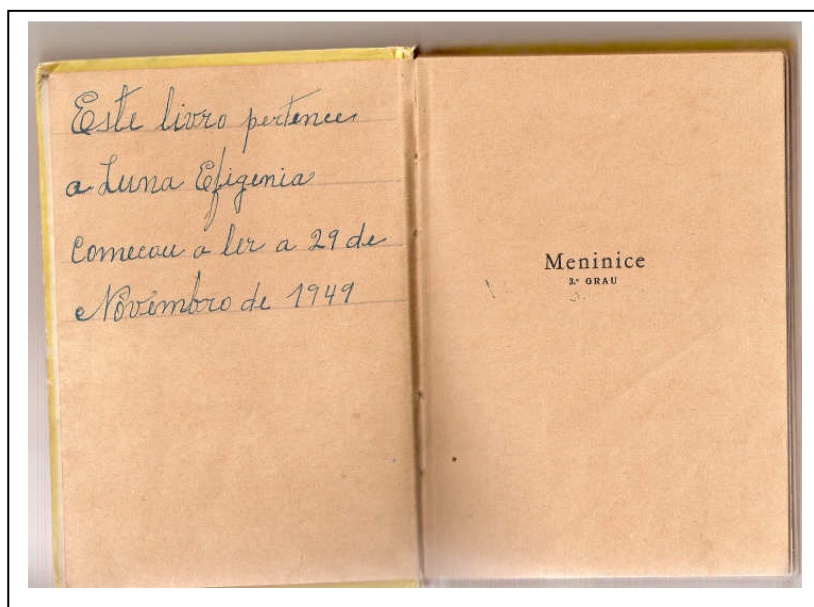 Este livro pertence
a Luna Efigenia
Comecou a ler a 29 de
Novêmbro de 1949
Meninice
3.º GRAU